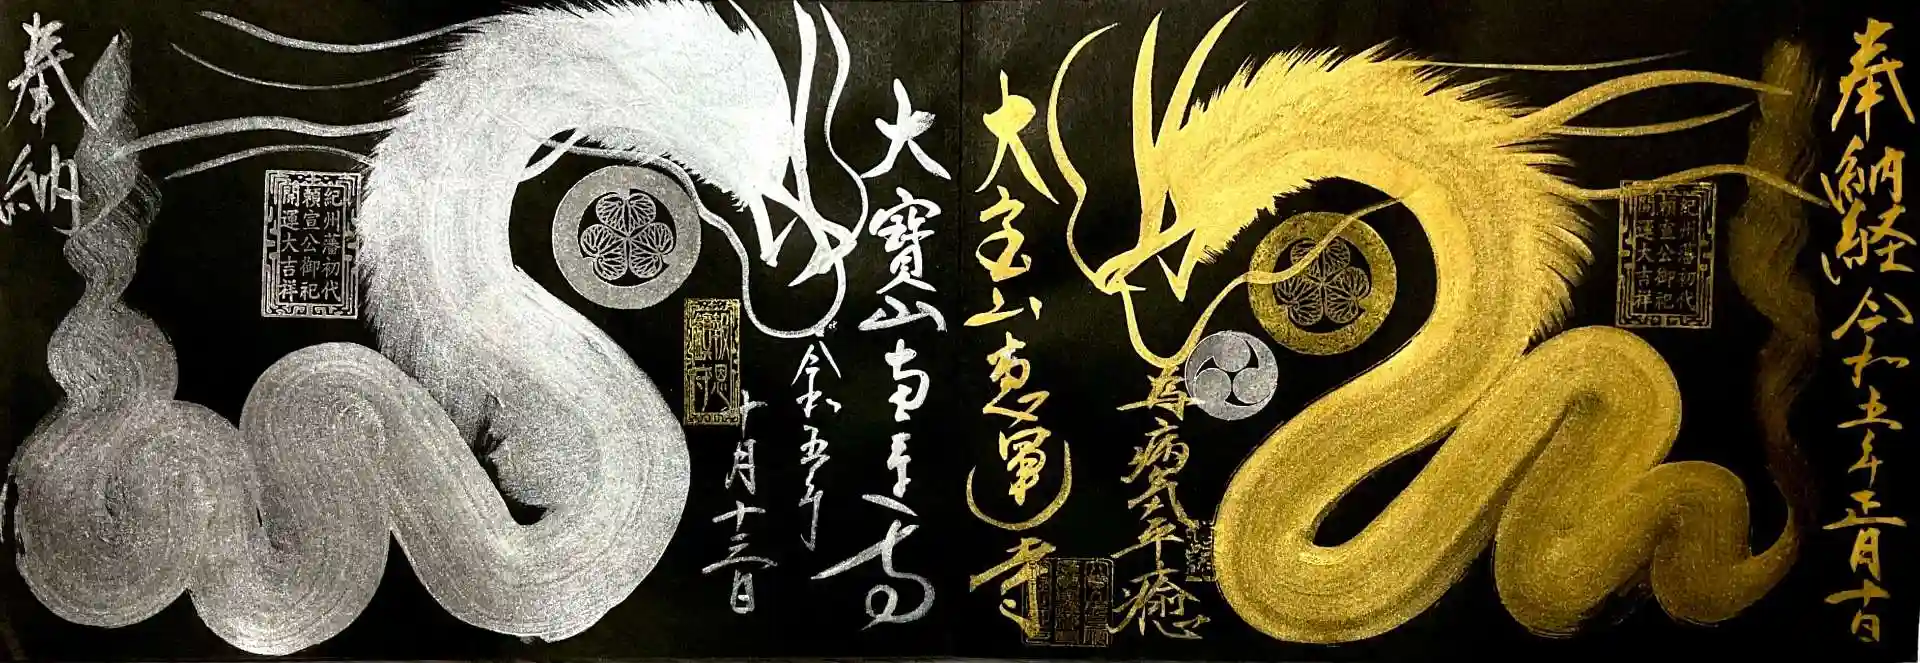 奉納経 令和五年正月十日
紀州藩初代
頼宣公御祀
開運大吉祥
為病気平癒
大宝山恵運寺
大寶山恵運寺
令和五年
十月十三日
報恩
紀州藩初代
頼宣公御祀
開運大吉祥
奉納